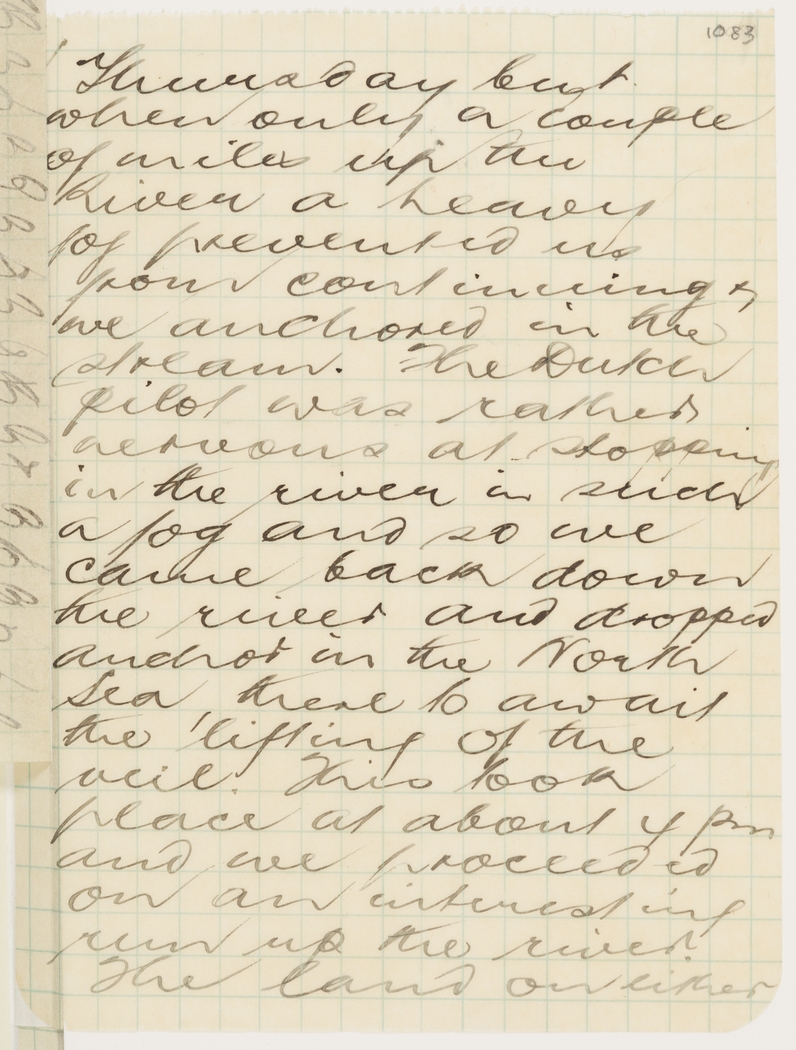 1083
Thursday but
when only a couple
of miles up the
River a heavy
fog prevented us
from continuing &
we anchored in the
stream. The Dutch
pilot was rather
nervous at stopping
in the river in such
a fog and so we
came back down
the river and dropped
anchor in the North
Sea, there to await
the 'lifting of the
veil. This took
place at about 4 pm
and we proceeded
on an interesting
run up the river.
The land on either